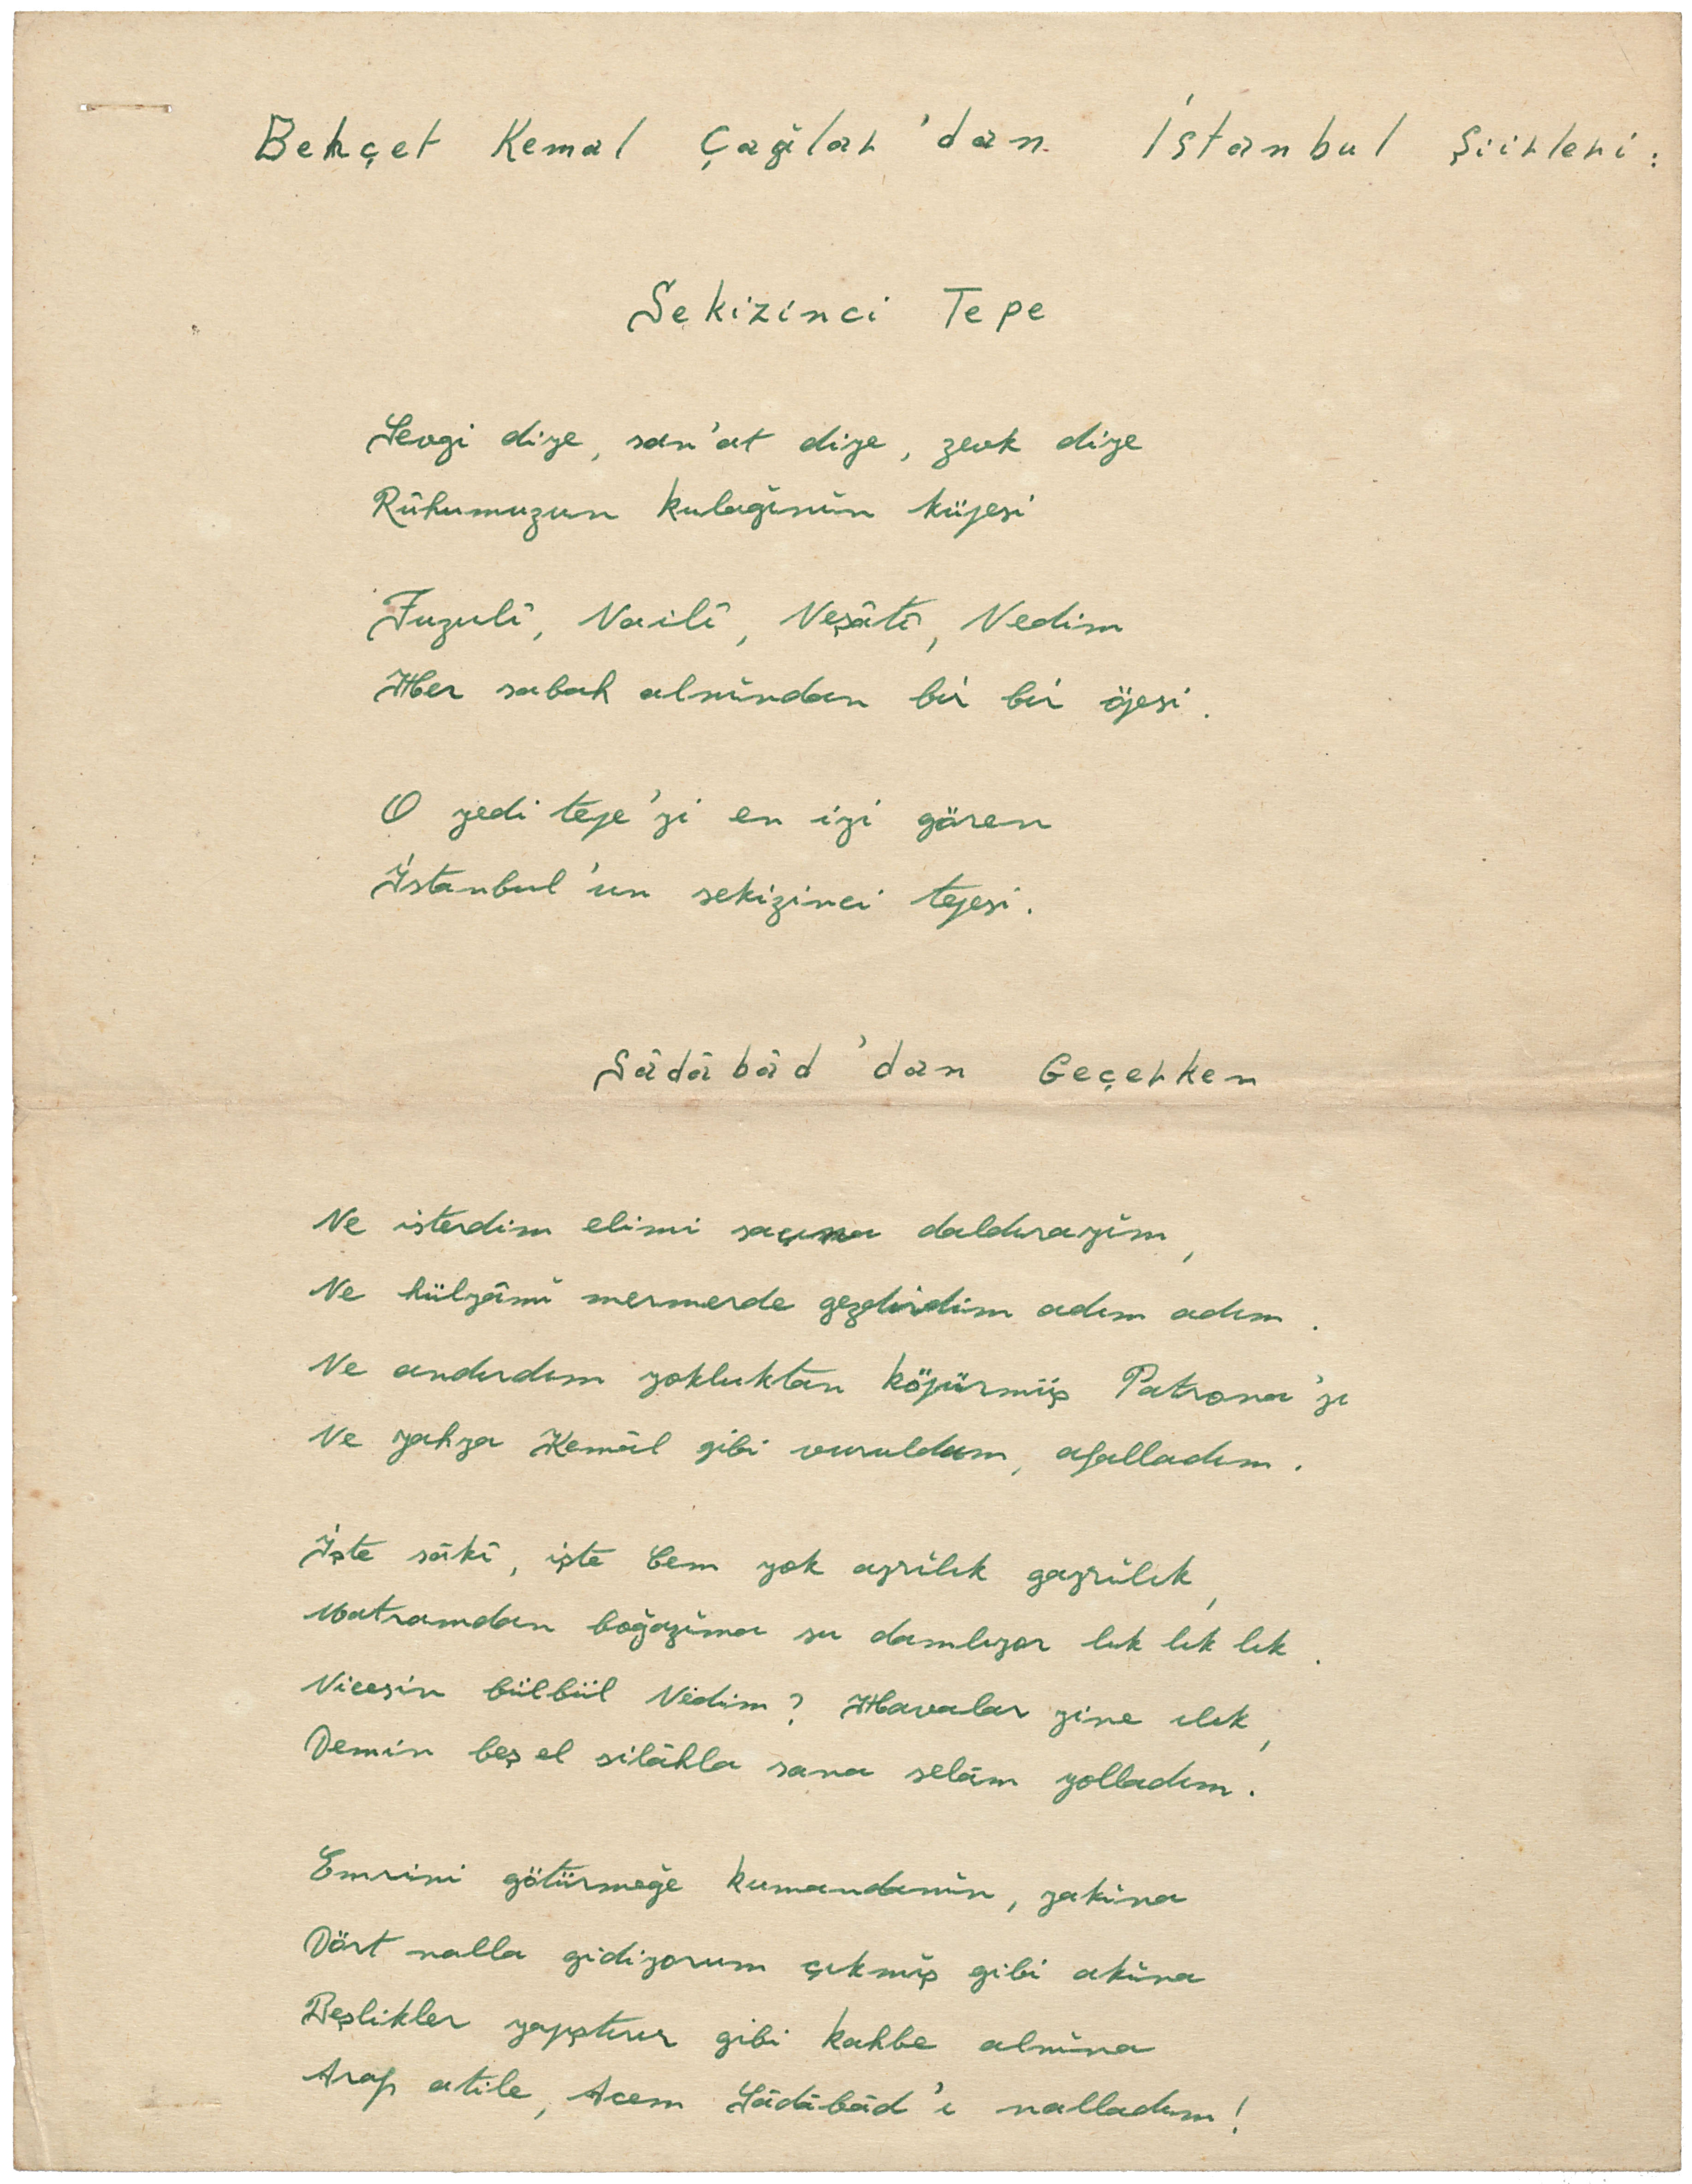 Behçet Kemal Çağlar'dan İstanbul Şiirleri:
Sekizinci Tepe
Sevgi diye, san'at diye, zevk diye
Rûhumuzun kulağının küpesi
Fuzulî, Nailî, Neşâtî, Nedim
Her sabah alnından bir bir öpesi.
O yedi tepe'yi en iyi gören
İstanbul'un sekizinci tepesi.
Sâdâbâd'dan Geçerken
Ne isterdim elimi saçına daldırayım,
Ne hülyâmı mermerde gezdirdim adım adım.
Ne andırdım yokluktan köpürmüş Patrona'yı
Ne yahya Kemâl gibi vuruldum, afalladım.
İşte sâkî, işte Cem yok ayrılık gayrılık,
Matramdan boğazıma su damlıyor lık lık lık.
Nicesin bülbül Nedim? Havalar yine ılık,
Demin beş el silâhla sana selâm yolladım.
Emrini götürmeğe kumandanın, yakına
Dört nalla gidiyorum çıkmış gibi akına
Beşlikler yapıştırır gibi kahbe alnına
Arap atile, Acem Sâdâbâd'ı nalladım!